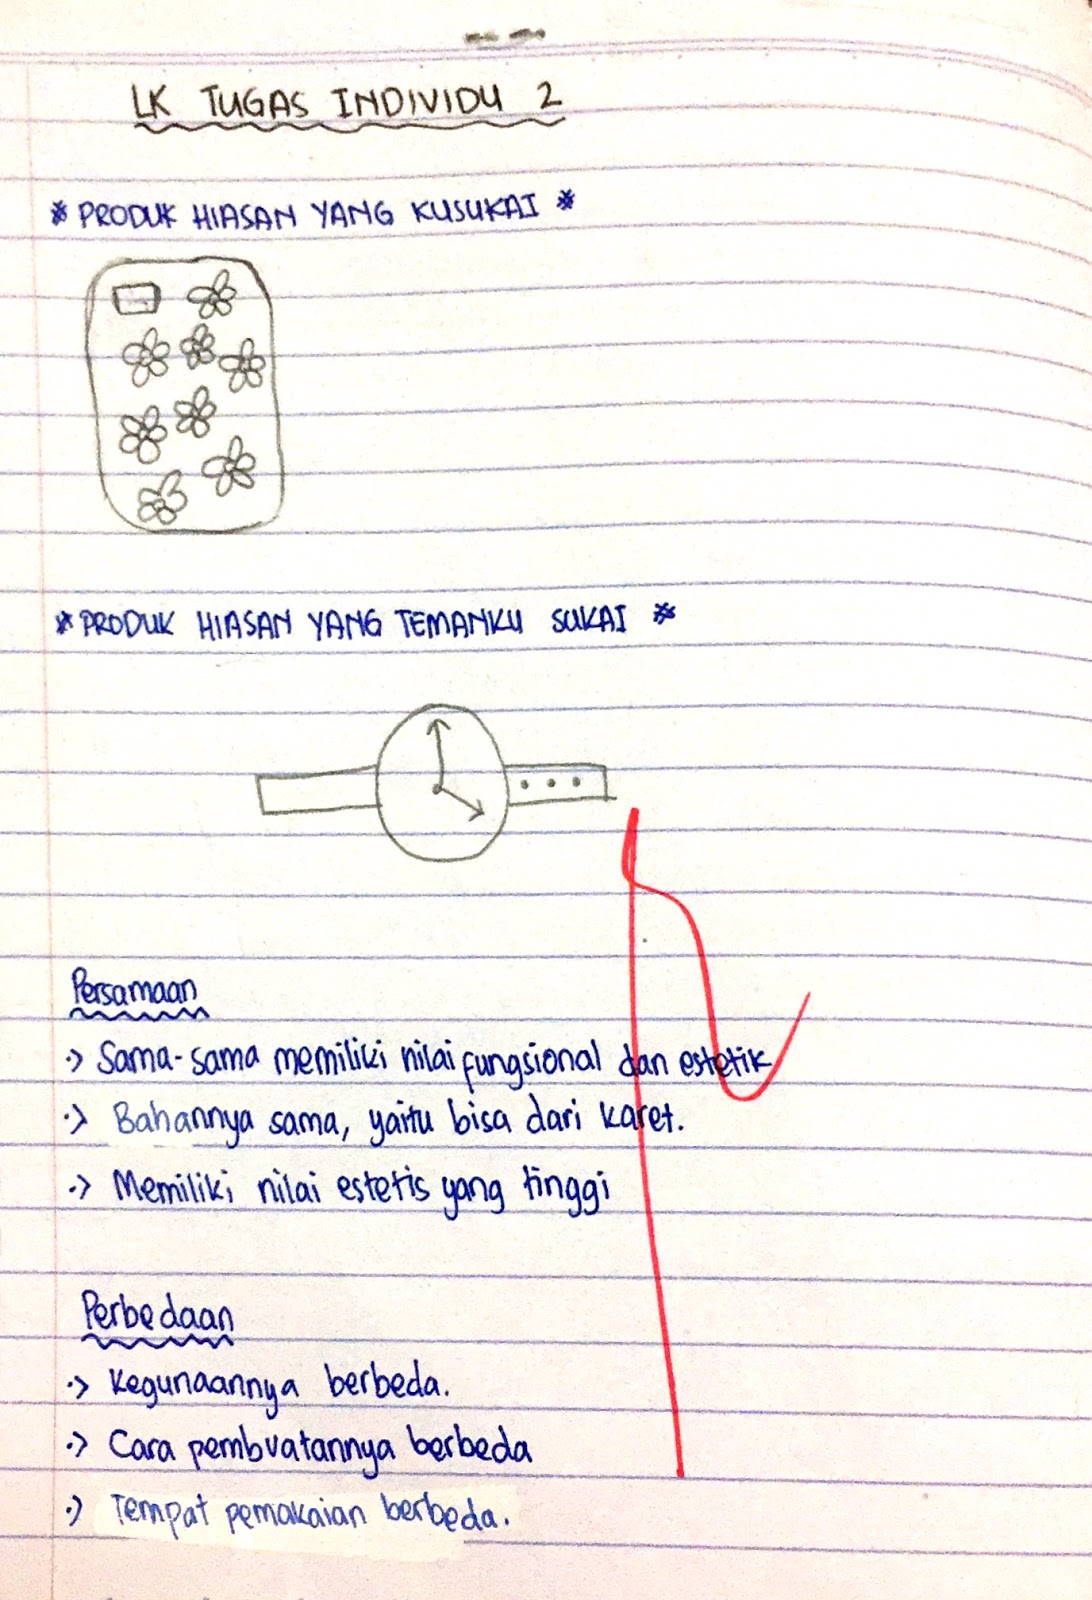 LK TUGAS INDIVIDU 2
* PRODUK HIASAN YANG KUSUKAI *
* PRODUK HIASAN YANG TEMANKU SUKAI *
Persamaan
-> Sama-sama memiliki nilai fungsional dan estetik
-> Bahannya sama, yaitu bisa dari karet.
-> Memiliki nilai estetis yang tinggi
Perbedaan
-> Kegunaannya berbeda.
-> Cara pembuatannya berbeda
-> Tempat pemakaian berbeda.